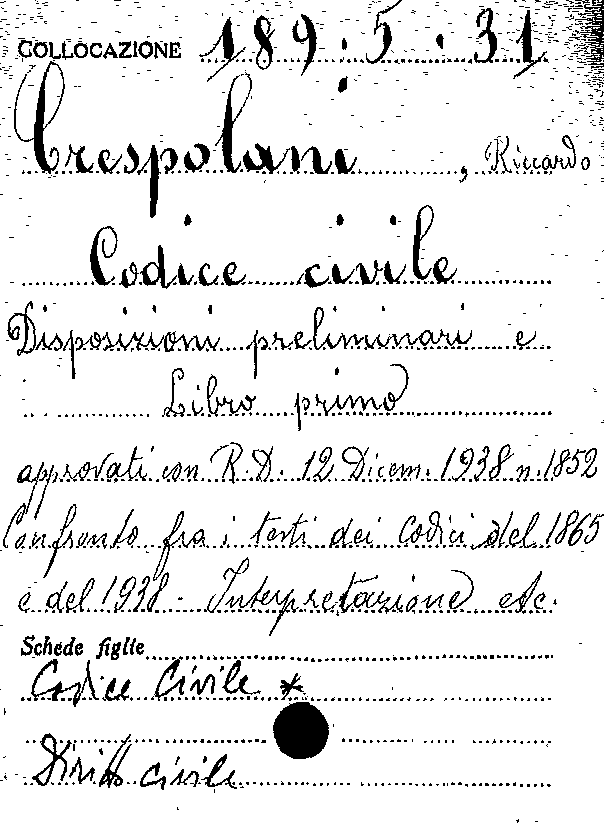 COLLOCAZIONE 189.5.31
Crespolani, Riccardo
Codice civile
Disposizioni preliminari e
Libro primo
approvati con R.D. 12 Dicem. 1938 n. 1852
Confronto fra i testi dei codici del 1865
e del 1938 - Interpretazione etc.
Schede figlie
Codice Civile *
Diritto civile